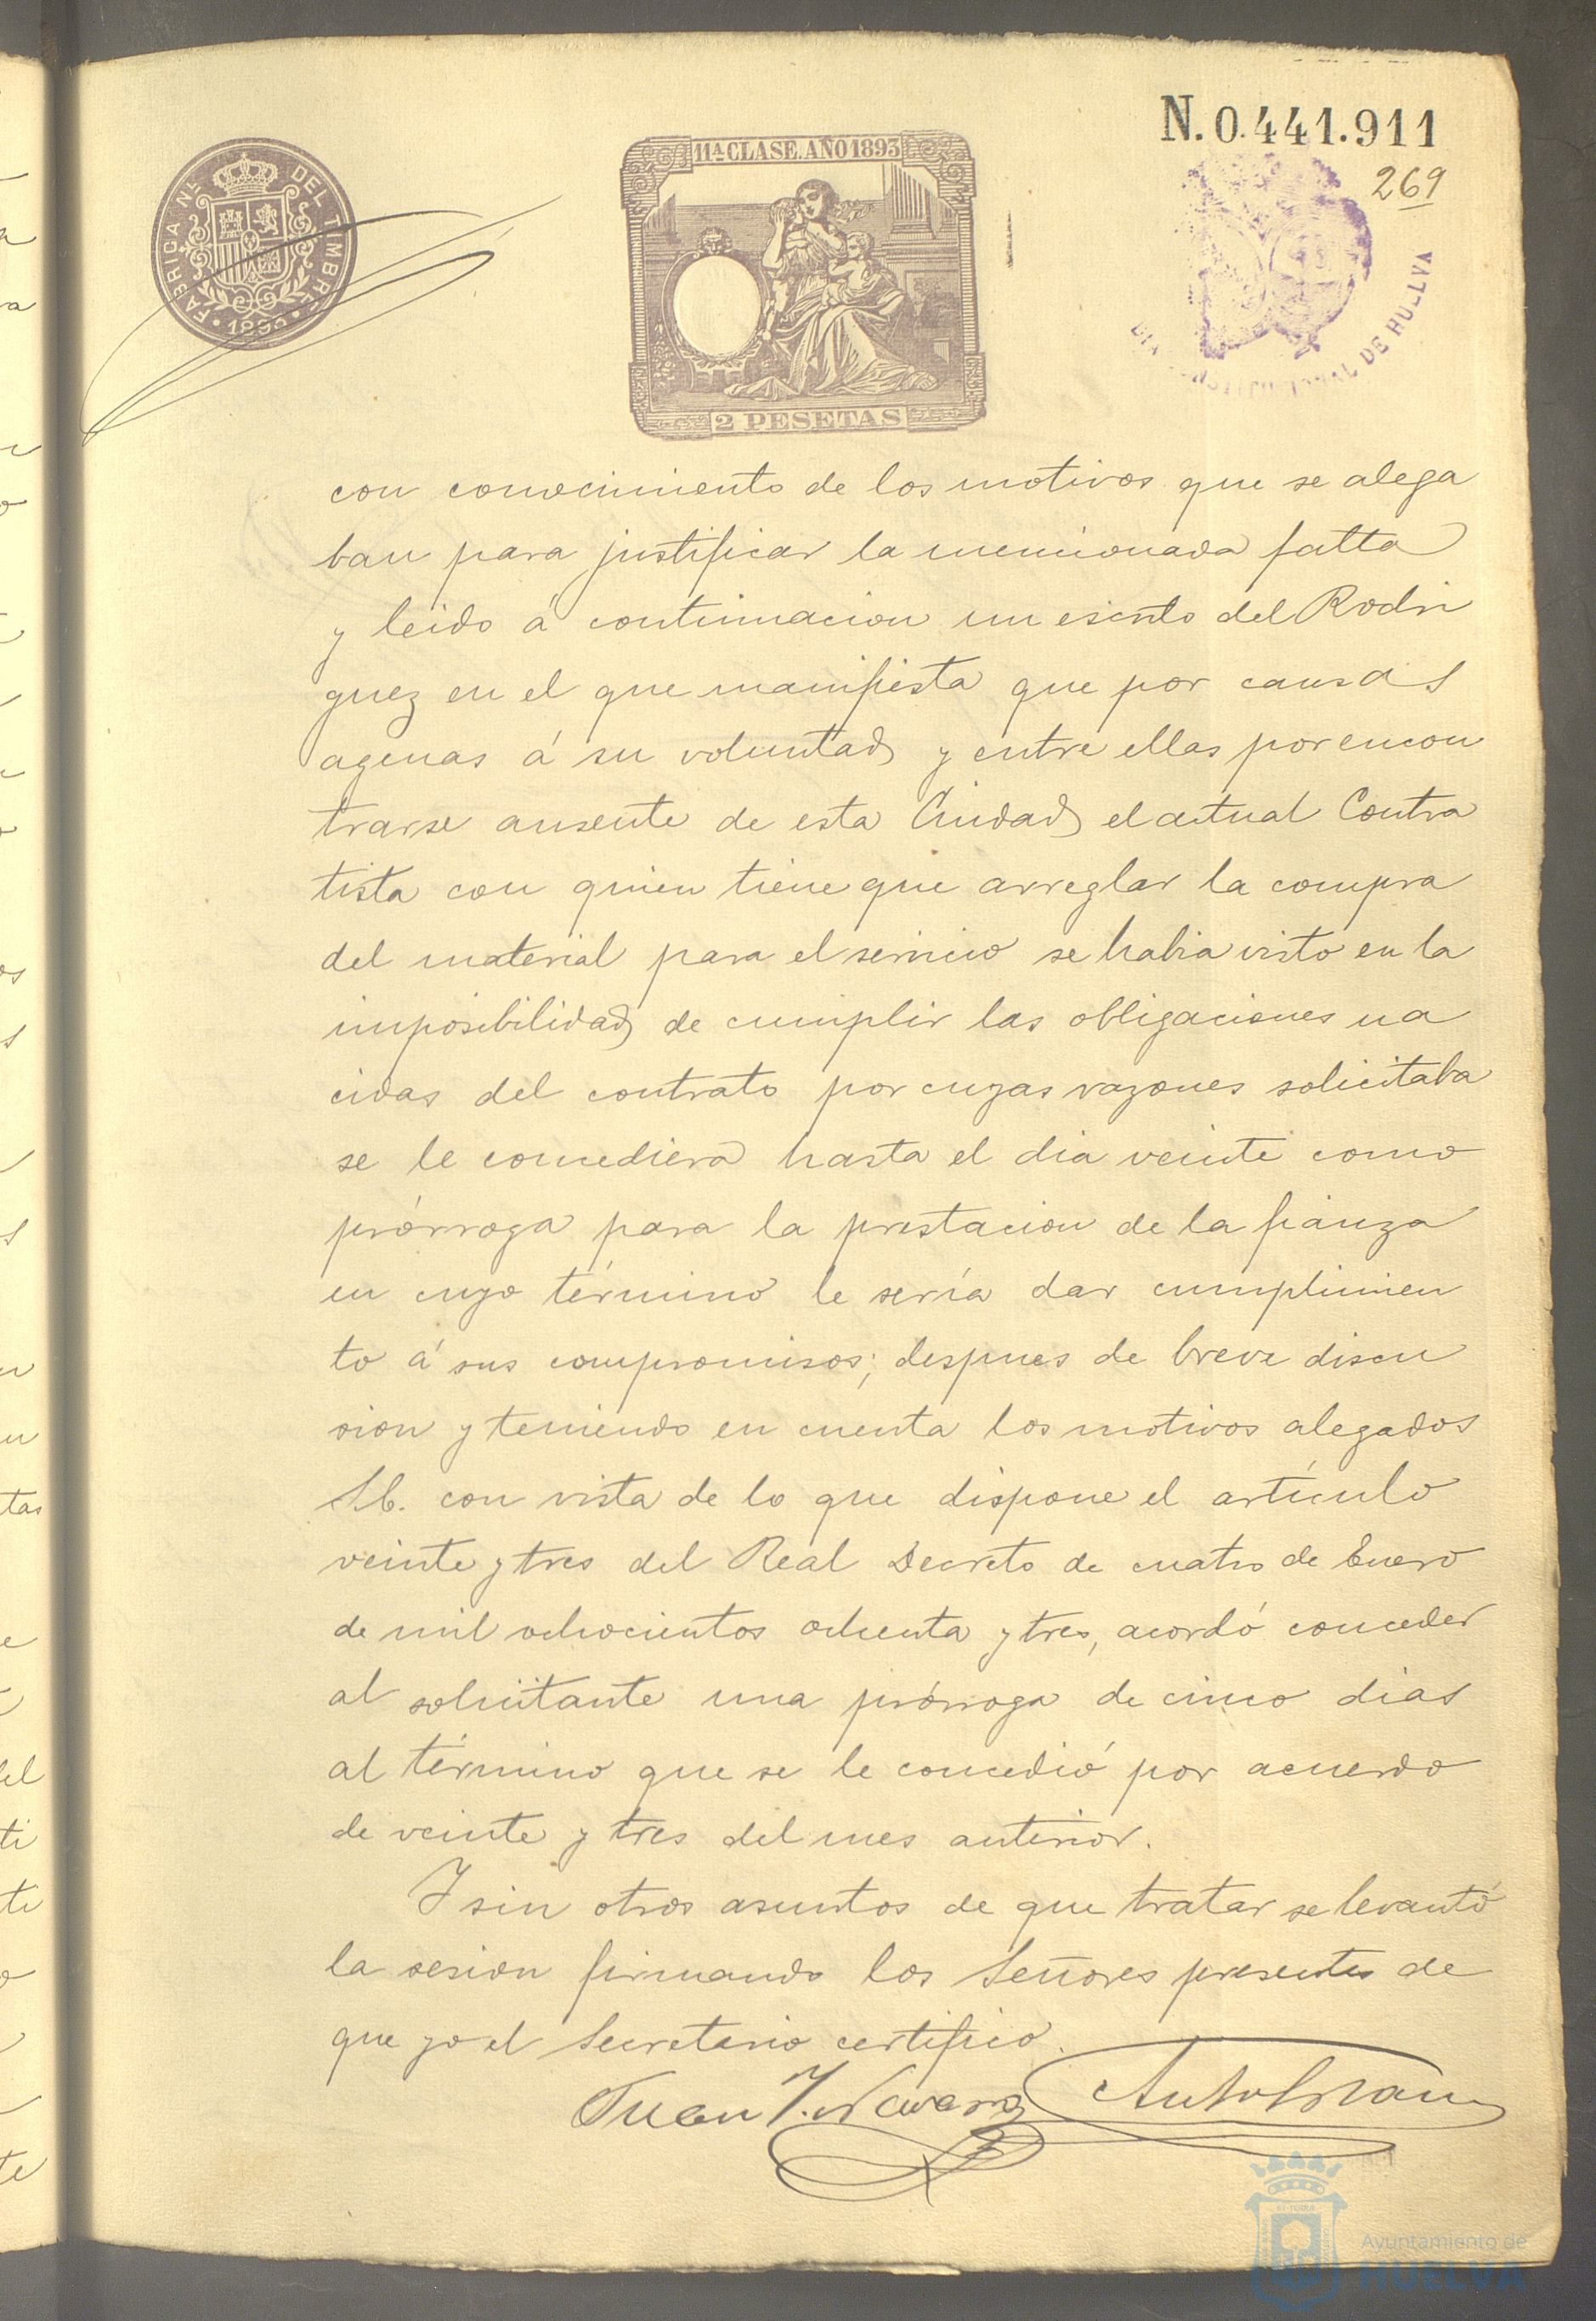 N.0.441.911
269
FABRICA NL. DEL TIMBRE
11ª CLASE. AÑO 1893
2 PESETAS
CONSTITUCIONAL DE HUELVA
con conocimiento de los motivos que se alega
ban para justificar la mencionada falta
y leido á continuacion un escrito del Rodri
guez en el que manifiesta que por causas
agenas á su voluntad y entre ellas por encon
trarse ausente de esta Ciudad el actual Contra
tista con quien tiene que arreglar la compra
del material para el servicio se habia visto en la
imposibilidad de cumplir las obligaciones na
cidas del contrato por cuyas razones solicitaba
se le concediera hasta el dia veinte como
prórroga para la prestacion de la fianza
en cuyo término le sería dar cumplimien
to á sus compromisos; despues de breve discu
sion y teniendo en cuenta los motivos alegados
S.E. con vista de lo que dispone el artículo
veinte y tres del Real Decreto de cuatro de Enero
de mil ochocientos ochenta y tres, acordó conceder
al solicitante una prórroga de cinco dias
al término que se le concedió por acuerdo
de veinte y tres del mes anterior.
Y sin otros asuntos de que tratar se levantó
la sesion firmando los Señores presentes de
que yo el Secretario certifico.
Juan J. Navarro
Ayuntamiento de
HUELVA